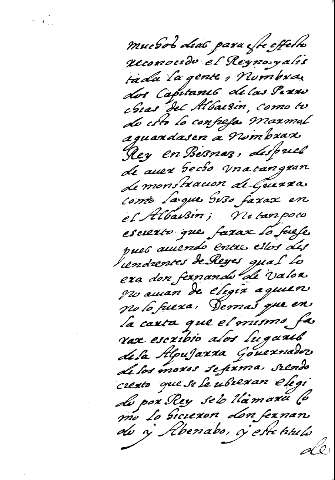 muchos dias para este effeto
reconocido el Reyno, y alis
tada la gente, y Nombra
dos Capitanes de las Parro
chias del Albaisin, como to
do esto lo confiesa Marmol
aguardasen a Nombrar
Rey en Beznar, despues
de aver hecho una tan gran
demonstracion de Guerra
como la que hizo farax en
el Albaisin; Ni tanpoco
es cierto que farax lo fuese
pues aviendo entre ellos des
cendientes de Reyes qual lo
era don fernando de Valor
No avian de elegir a quien
no lo fuera, Demas que en
la carta que el mismo fa
rax escribio a los lugares
de la Alpujarra Governador
de los moros se firma, siendo
cierto que se lo ubieran elegi
do por Rey se lo llamara co
mo lo hicieron don fernan
do y Abenabo, y este titulo
de